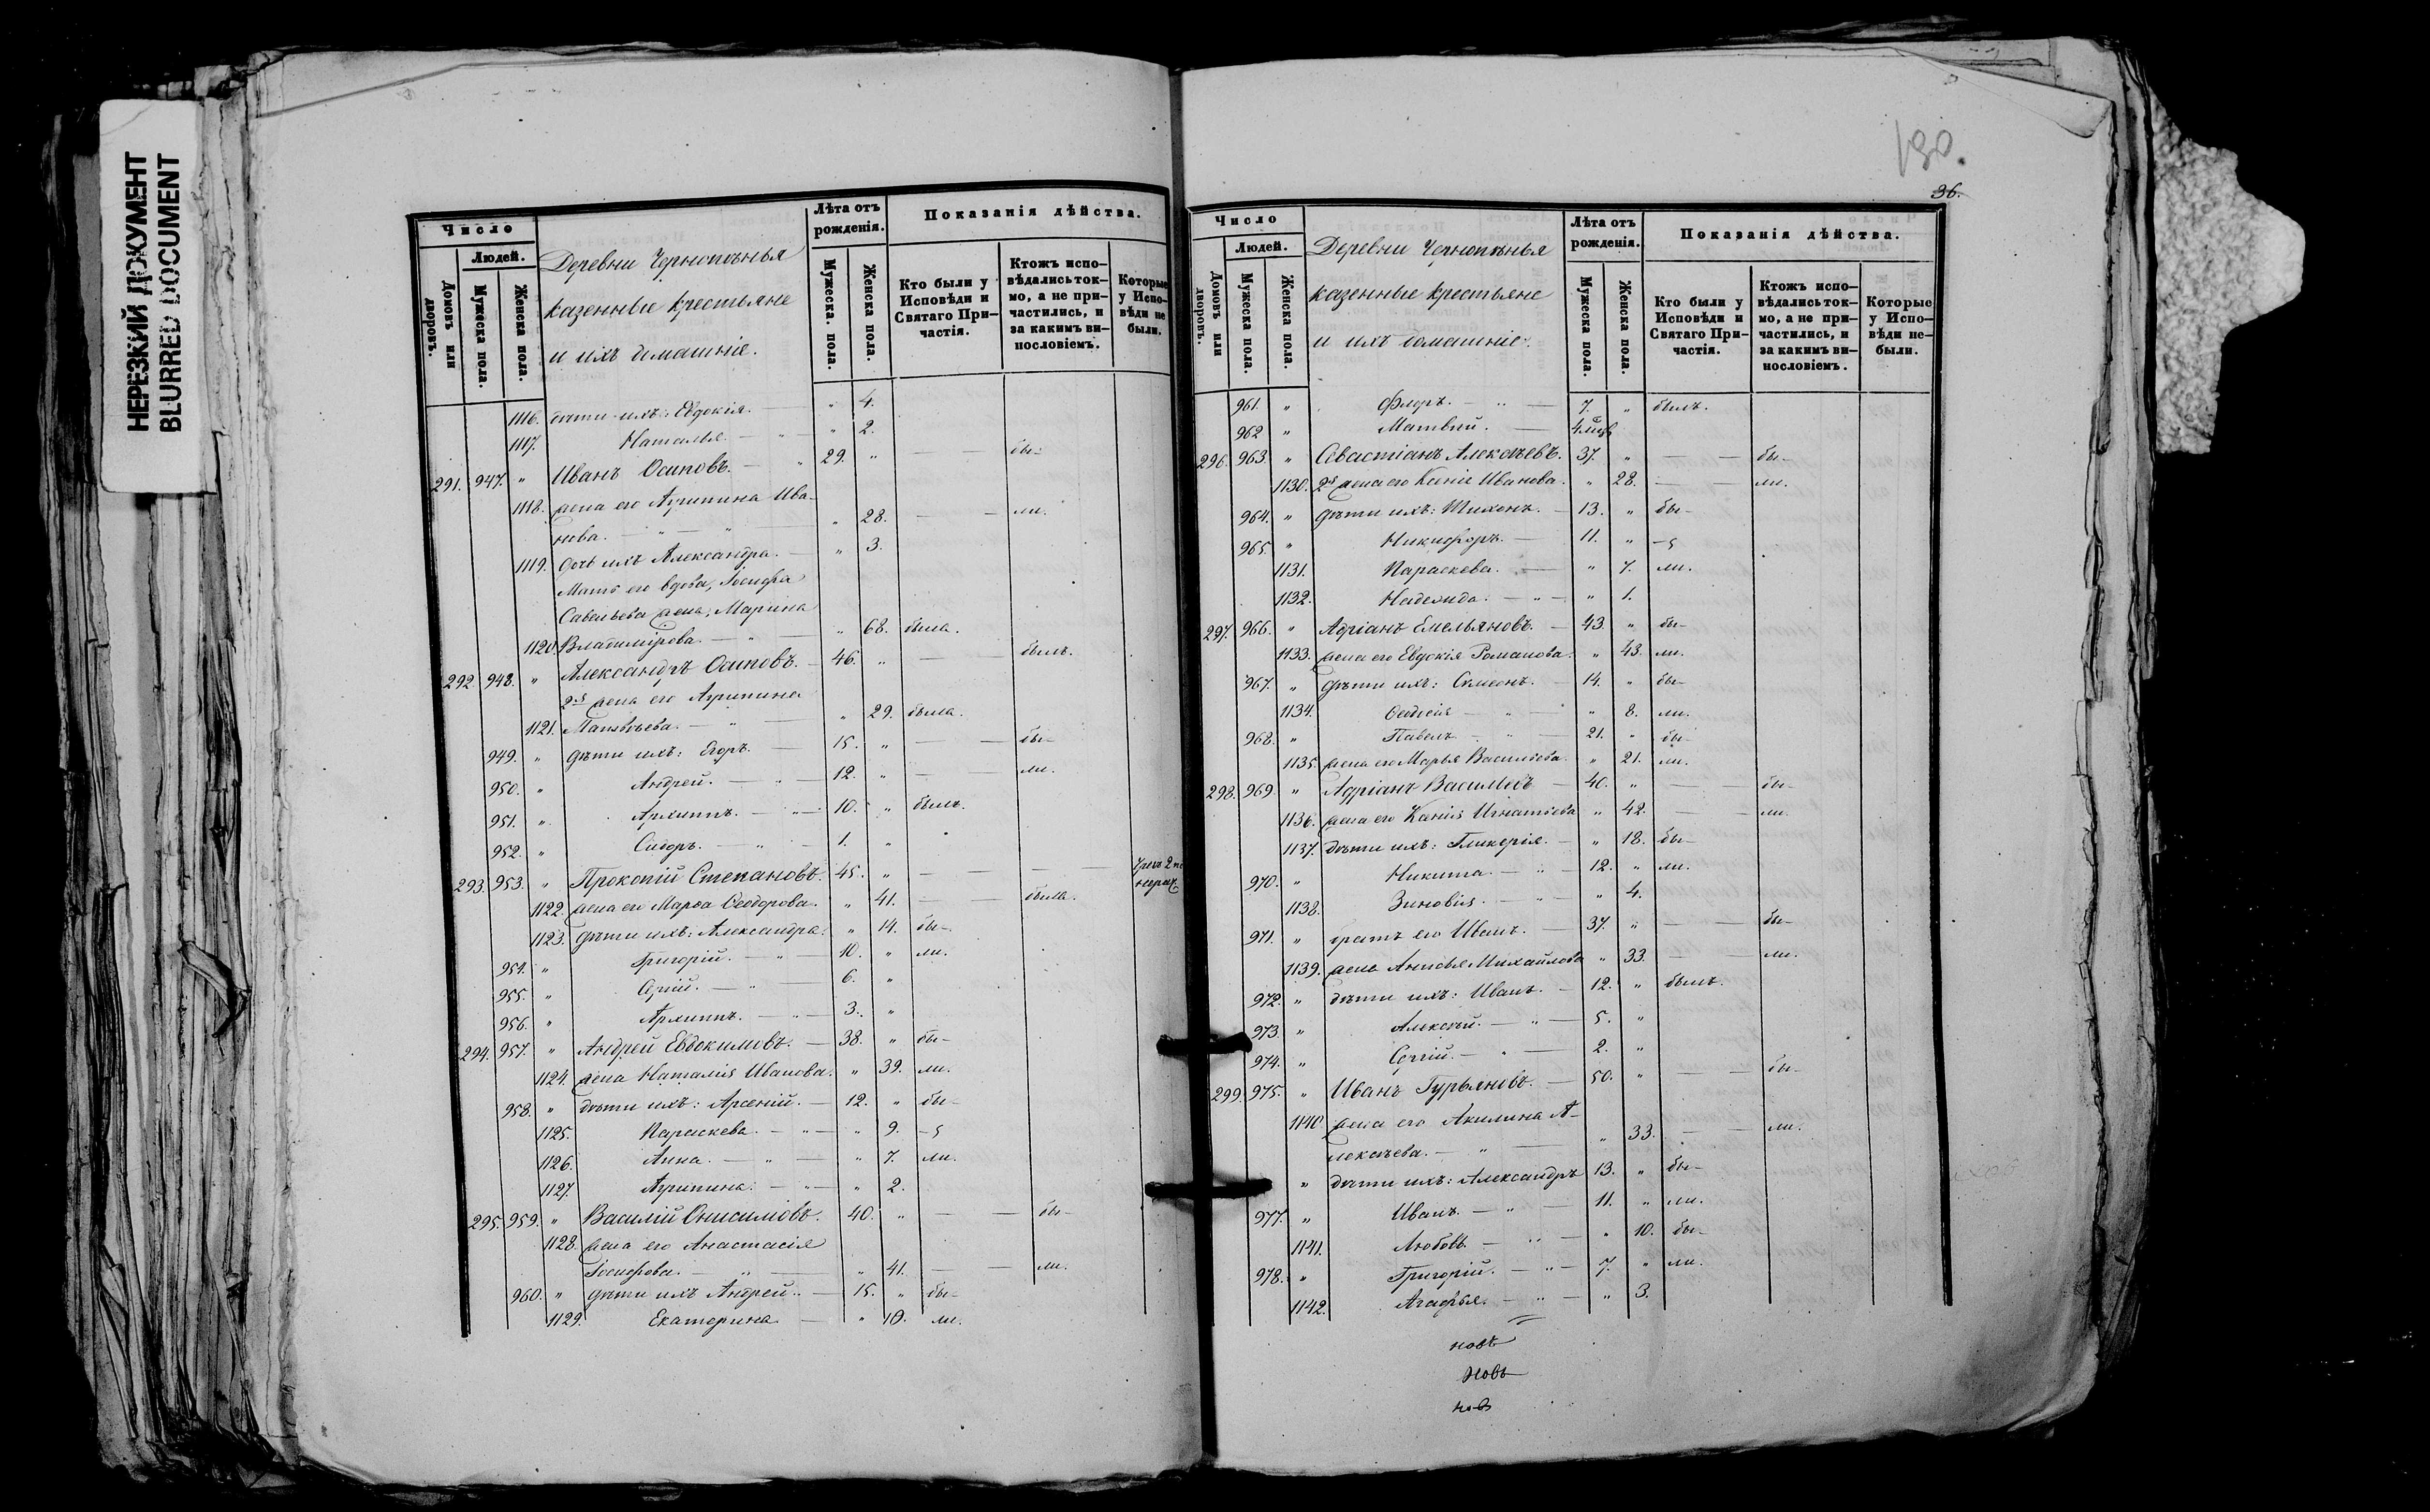 НЕРЕЗКИЙ ДОКУМЕНТ
BLURRED DOCUMENT
Число
Людей.
Домовъ или дворовъ.
Мужеска пола.
Женска пола.
Деревни Чернопенья
казенные крестьяне
и ихъ домашніе.
Лѣта отъ рожденія.
Мужеска пола.
Женска пола.
Показанія дѣйства.
Кто были у Исповѣди и Святаго Причастія.
Ктожъ исповѣдались токмо, а не причастились, и за какимъ винословіемъ.
Которые у Исповѣди не были.
1116. дѣти ихъ: Евдокія. — " 4.
1117. Наталья. — " — " 2.
291. 947. " Иванъ Осиповъ. — " 29. " — — бы-
1118. жена его Агрипина Ива-
нова. — " — " 28. — — ли.
1119. дочь ихъ Александра. — " 3.
Мать его вдова, Іосифа
Савельева жена, Марина
1120. Владимірова. — " — " 68. была.
292. 948. " Александръ Осиповъ. — 46. " — — былъ.
2я жена его Агрипина
1121. Матвѣева. — " — " 29. была.
949. " дѣти ихъ: Егоръ. — 15. " — — бы-
950. " Андрей. — " — 12. " — — ли.
951. " Архиппъ. — " — 10. " былъ.
952. " Сидоръ. — " — 1. "
293. 953. " Прокопій Степановъ. 45. " — — —
1122. жена его Марѳа Ѳеодорова. " 41. — — была.
1123. дѣти ихъ: Александра. " 14. бы-
954. " Григорій. — " — 10. " ли.
955. " — " — 6. "
956. " Архиппъ. — " — 3. "
294. 957. " Андрей Евдокимовъ. — 38. " бы-
1124. жена Наталія Иванова. " 39. ли.
958. " дѣти ихъ: Арсеній. — 12. " бы-
1125. Параскева. — " — " 9. -
1126. Анна. — " — " 7. ли.
1127. Агрипина. — " — " 2.
295. 959. " Василій Онисимовъ. 40. " — — бы-
1128. жена его Анастасія
Іосифова. — " — " 41. — — ли.
960. " дѣти ихъ Андрей. — 15. " бы-
1129. Екатерина — " 10. ли.
130.
36.
Число
Людей.
Домовъ или дворовъ.
Мужеска пола.
Женска пола.
Деревни Чернопенья
казенные крестьяне
и ихъ домашніе.
Лѣта отъ рожденія.
Мужеска пола.
Женска пола.
Показанія дѣйства.
Кто были у Исповѣди и Святаго Причастія.
Ктожъ исповѣдались токмо, а не причастились, и за какимъ винословіемъ.
Которые у Исповѣди небыли.
961. " Флоръ. — " — 7. " былъ.
962 " Матвій. —
296. 963. " Севастіанъ Алексѣевъ. 37. " — — бы-
1130. 2я жена его Ксенія Иванова. " 28. — — ли.
964. " дѣти ихъ: Тихонъ. — 13. " бы-
965. " Никифоръ. — 11. " -
1131. Параскева. — " 7. ли.
1132. Надежда. — " — " 1.
297. 966. " Адріанъ Емельяновъ. — 43. " бы-
1133. жена его Евдокія Романова. " 43. ли.
967. " дѣти ихъ: Симеонъ. — 14. " бы-
1134. Ѳеодосія — " — " 8. ли.
968. " Павелъ — " — 21. " бы-
1135. жена его Марья Васильева. " 21. ли.
298. 969. " Адріанъ Васильевъ — 40. " — — бы-
1136. жена его Ксенія Игнатьева " 42. — — ли.
1137. дѣти ихъ: Гликерія. — " 18. бы-
970. " Никита. — " — 12. " ли.
1138. Зиновія. — " — " 4.
971. " братъ его Иванъ. — 37. " — — бы-
1139. жена Анисья Михайлова " 33. — — ли.
972. " дѣти ихъ: Иванъ. — 12. " былъ.
973. " Алексѣй. — " — 5. "
974. " Сергій. — " — 2. "
299. 975. " Иванъ Гурьяновъ. — 50. " — — бы-
1140 жена его Акилина А-
лексѣева. — " — " 33. — — ли.
" дѣти ихъ: Александръ 13. " бы-
977. " Иванъ. — " — 11. " ли.
1141. Любовь. — " — " 10. бы-
978. " Григорій. — " — 7. " ли.
1142. Агафья. — " — " 3.
новъ
новъ
новъ